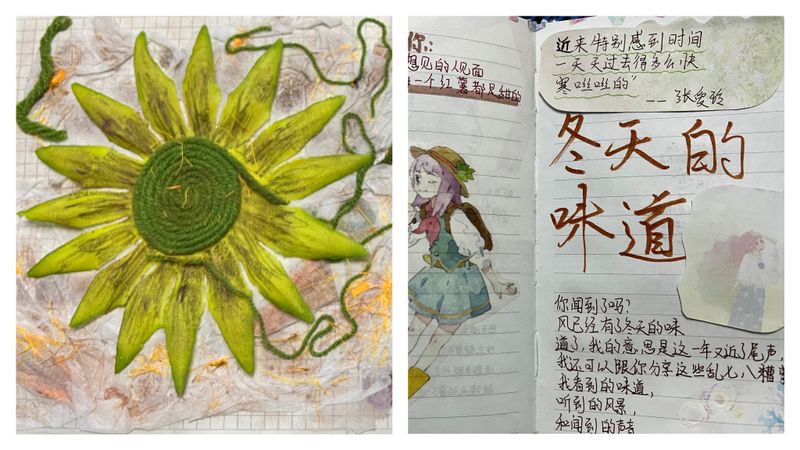 你,:
想见的人见面
一个红薯都是甜的
近来特别感到时间
一天天过去得多么快
寒咝咝的”
——张爱玲
冬天的
味道
你闻到了吗?
风已经有了冬天的味
道了,我的意思是这一年又近了尾声,
我还可以跟你分享这些乱七八糟
我看到的味道,
听到的风景,
和闻到的声音